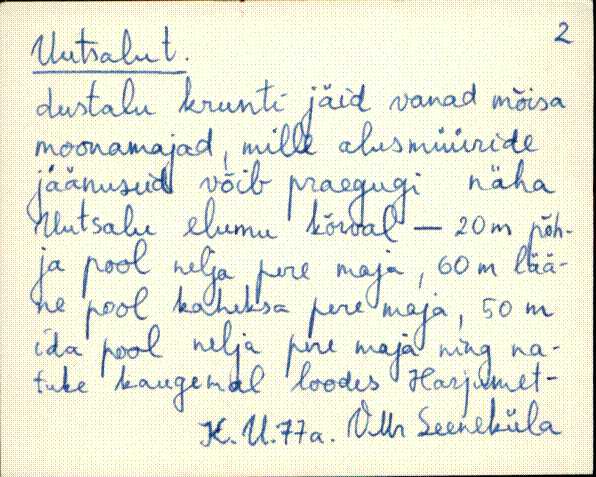 2
Uutsalu t.
dustalu krunti jäid vanad mõisa
moonamajad, mille alusmüüride
jäänuseid võib praegugi näha
Uutsalu elumu kõrval — 20 m põh-
ja pool nelja pere maja, 60 m lää-
ne pool kaheksa pere maja, 50 m
ida pool nelja pere maja ning na-
tuke kaugemal loodes Harjumet-
K. U. 77a. V.Mr Seeneküla